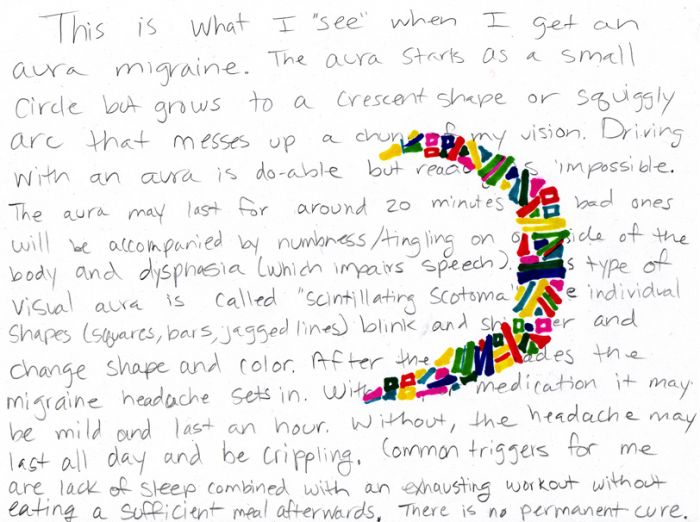 This is what I "see" when I get an
aura migraine. The aura starts as a small
circle but grows to a crescent shape or squiggly
arc that messes up a chunk of my vision. Driving
with an aura is do-able but reading is impossible.
The aura may last for around 20 minutes bad ones
will be accompanied by numbness/tingling on side of the
body and dysphasia (which impairs speech). type of
visual aura is called "scintillating scotoma" individual
shapes (squares, bars, jagged lines) blink and shimmer and
change shape and color. After the fades the
migraine headache sets in. With medication it may
be mild and last an hour. Without, the headache may
last all day and be crippling. Common triggers for me
are lack of sleep combined with an exhausting workout without
eating a sufficient meal afterwards. There is no permanent cure.